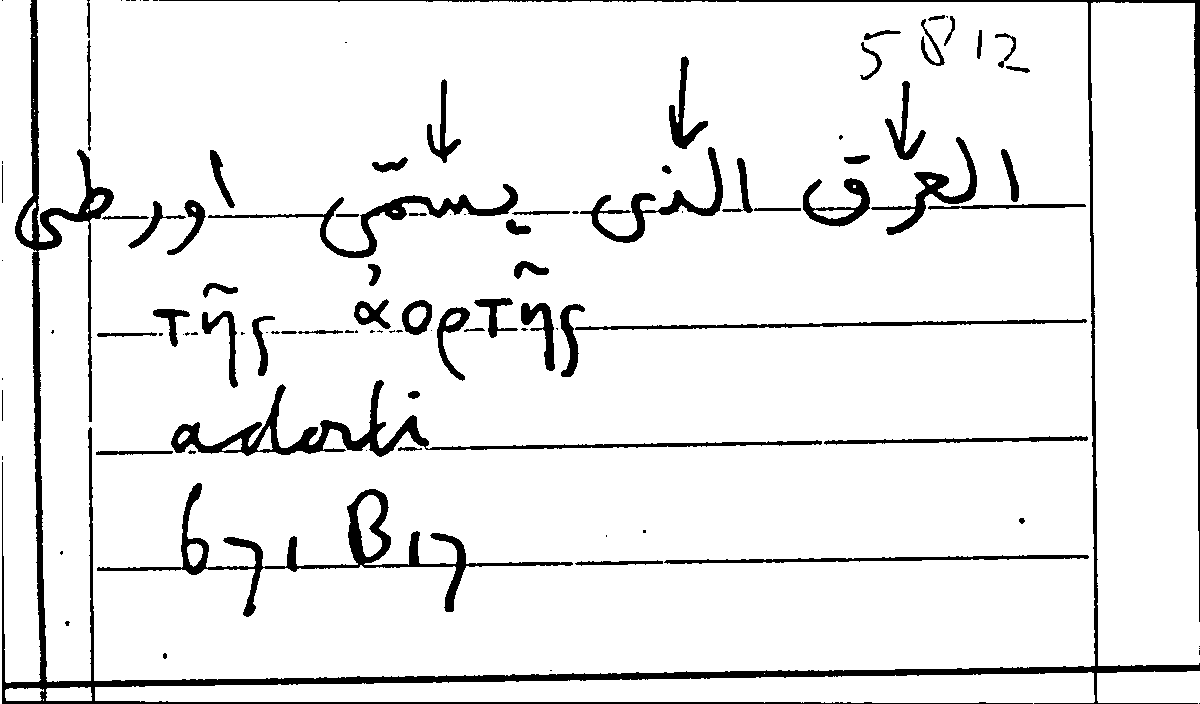 5812
العرق الذى يسمّى اورطى
τῆς ἀορτῆς
adorti
671 B17